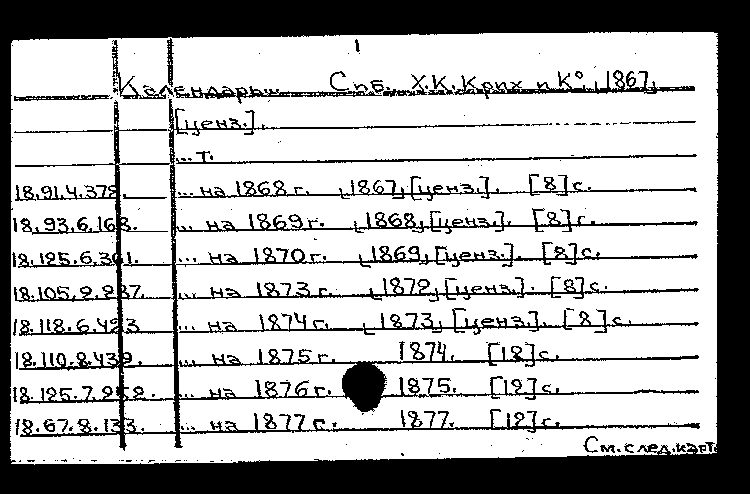 1
Календарь. Спб. Х.К. Крих и К°, 1867,
[ценз.].
... т.
18.91.4.378. ... на 1868 г. 1867, [ценз.]. [8] с.
18.93.6.168. ... на 1869 г. 1868, [ценз.]. [8] с.
18.125.6.361. ... на 1870 г. 1869, [ценз.]. [8] с.
18.105.2.287. ... на 1873 г. 1872, [ценз.]. [8] с.
18.118.6.423 ... на 1874 г. 1873, [ценз.]. [8] с.
18.110.8.439. ... на 1875 г. 1874. [12] с.
18.125.7.252. ... на 1876 г. 1875. [12] с.
18.67.8.133. ... на 1877 г. 1877. [12] с.
См. след. карт.